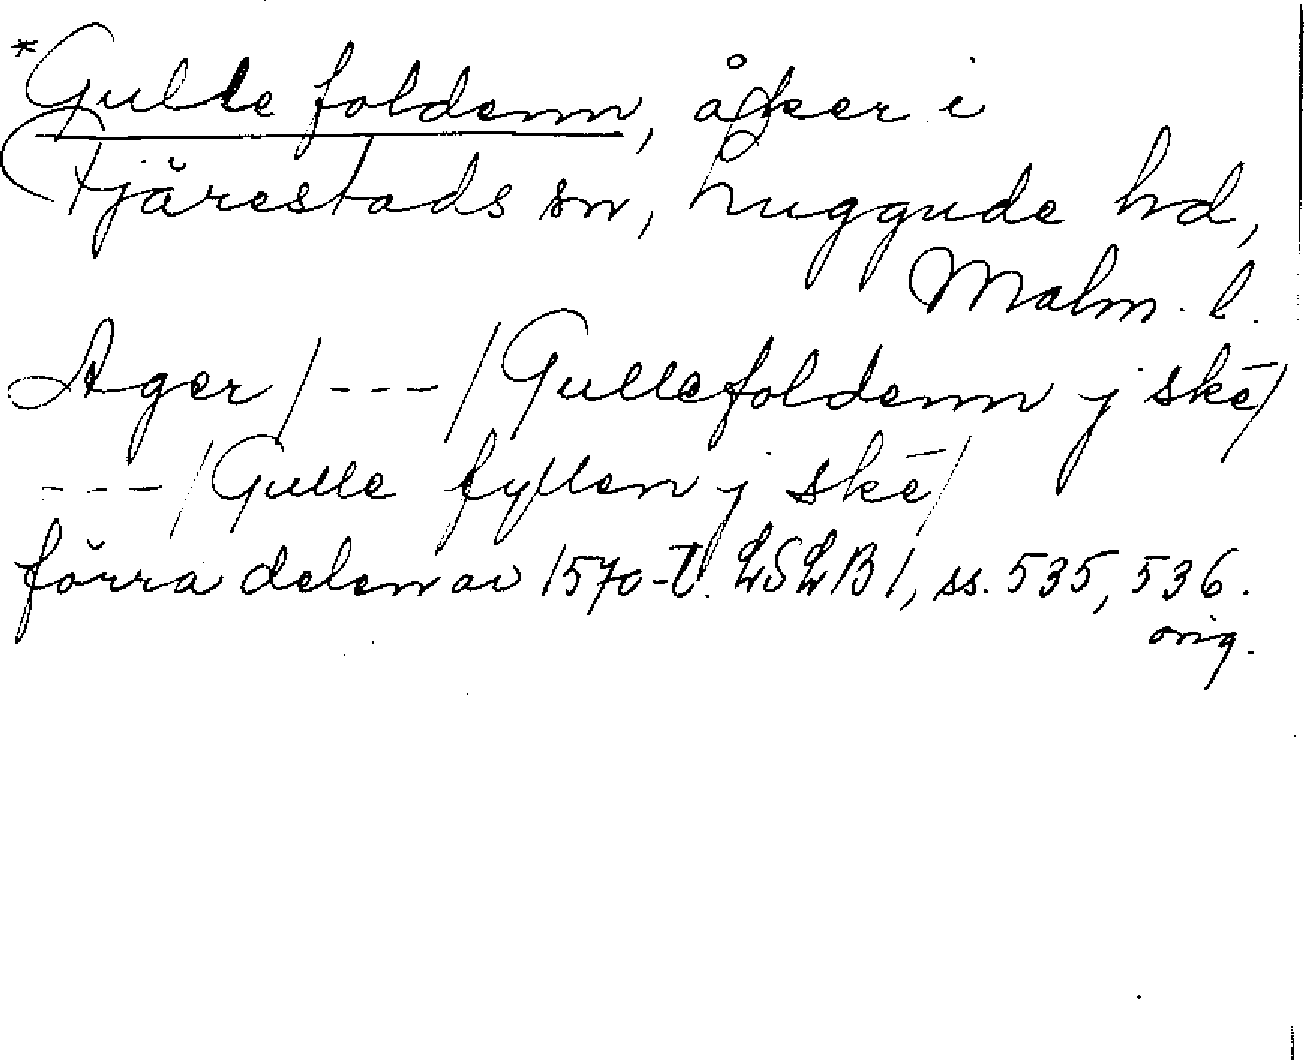 *Gulle foldenn, åker i
Fjärestads sn, Luggude hd,
Malm. l.
Ager /---/ Gullefoldenn j skē/
---/ Gulle fyllen j skē/
förra delen av 1570-t. LSLB1, ss. 535, 536.
orig.